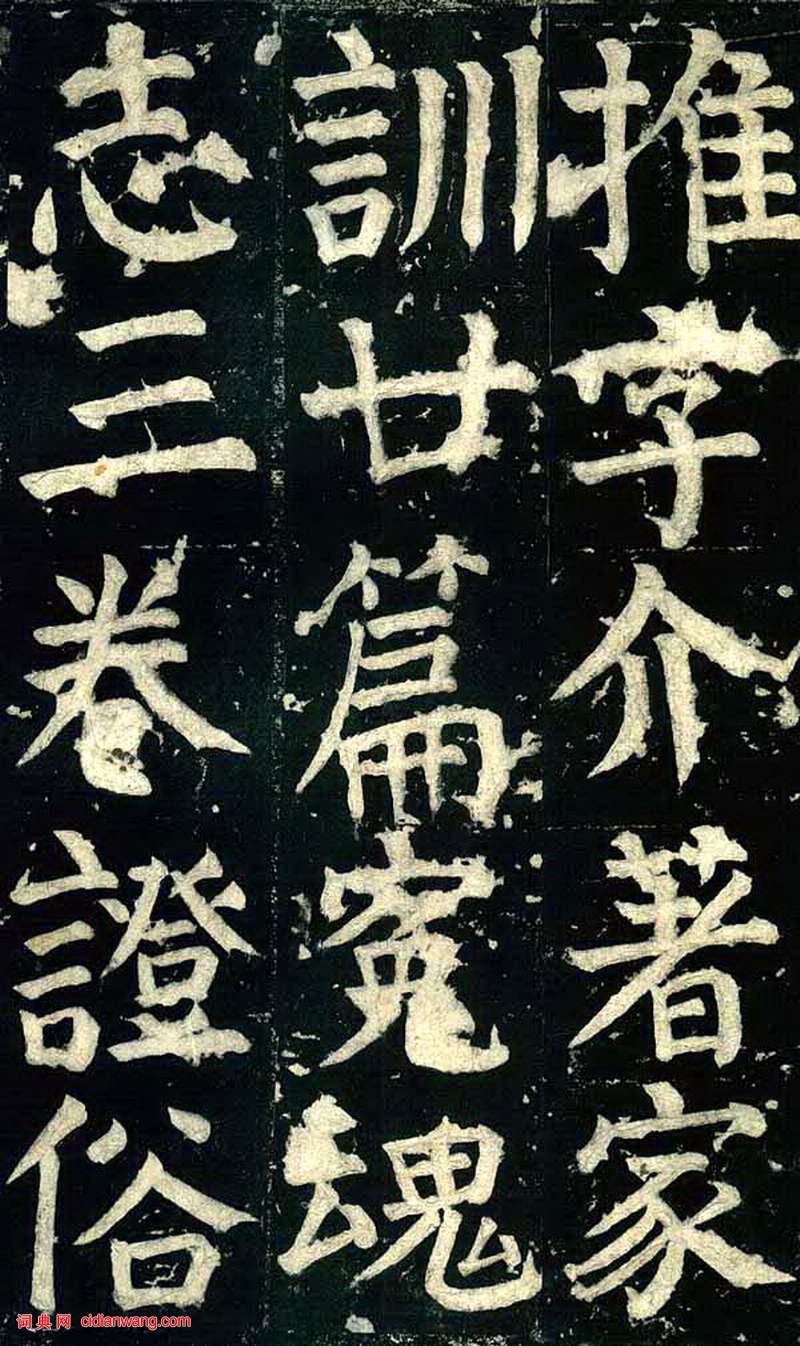 推字介著家
訓廿篇寃魂
志三卷證俗
词典网 cidianwang.com